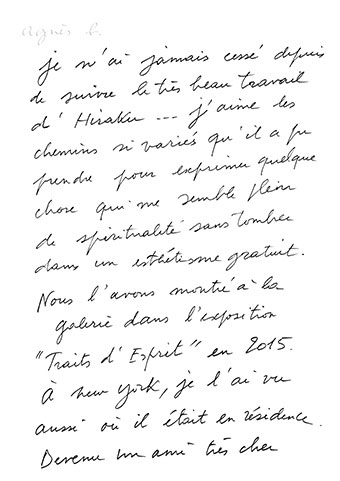 agnès b.
je n'ai jamais cessé depuis
de suivre le très beau travail
d'Hiraku --- j'aime les
chemins si variés qu'il a pu
prendre pour exprimer quelque
chose qui me semble plein
de spiritualité sans tomber
dans un esthétisme gratuit.
Nous l'avons montré à la
galerie dans l'exposition
"Traits d'Esprit" en 2015.
À New York, je l'ai vu
aussi où il était en résidence.
Devenu un ami très cher